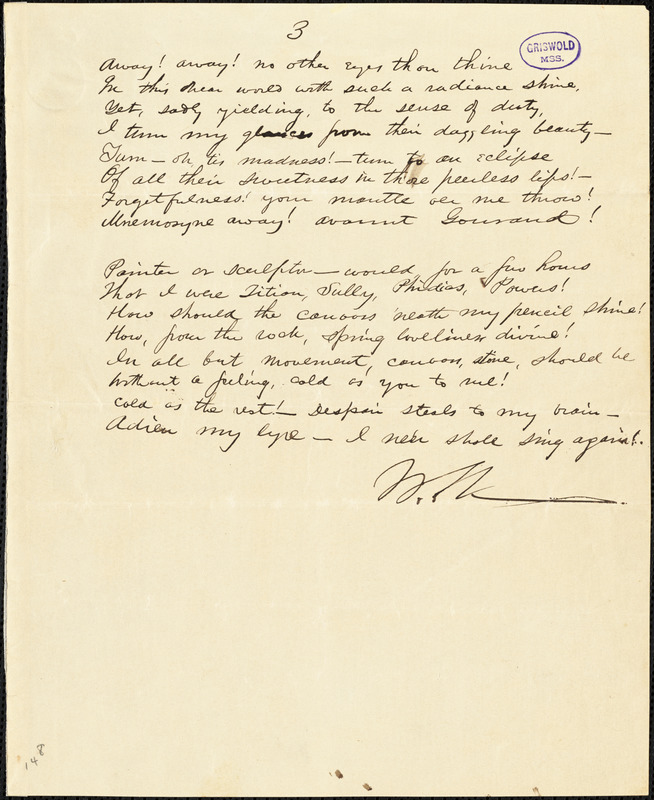 3
GRISWOLD
MSS.
Away! away! no other Eyes than thine
In this drear world with such a radiance shine,
Yet, sadly yielding, to the sense of duty,
I turn my glances from their dazzling beauty—
Turn — oh, tis madness! — turn to an Eclipse
Of all their sweetness in those peerless lips! —
Forgetfulness! your mantle oer me throw!
Mnemosyne away! avaunt Gouraud!
Painter or sculptor — would, for a few hours
That I were Titian, Sully, Phidias, Powers!
How should the canvass neath my pencil shine!
How, from the rock, spring loveliness divine!
In all but movement, canvass, stone, should be
Without a feeling, cold as you to me!
Cold as the rest! — Despair steals to my brain —
Adieu my lyre — I ne'er shall sing again!.
148